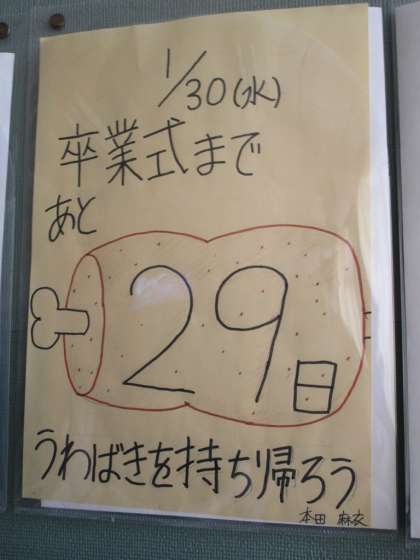 1/30(水)
卒業式まで
あと
29日
うわばきを持ち帰ろう
本田 麻衣